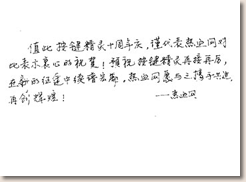 值此按键精灵十周年庆，谨代表热血网对
此表示衷心的祝贺！预祝按键精灵再接再厉，
在新的征途中续谱宏图，热血网愿与之携手共进
再创辉煌！
——热血网